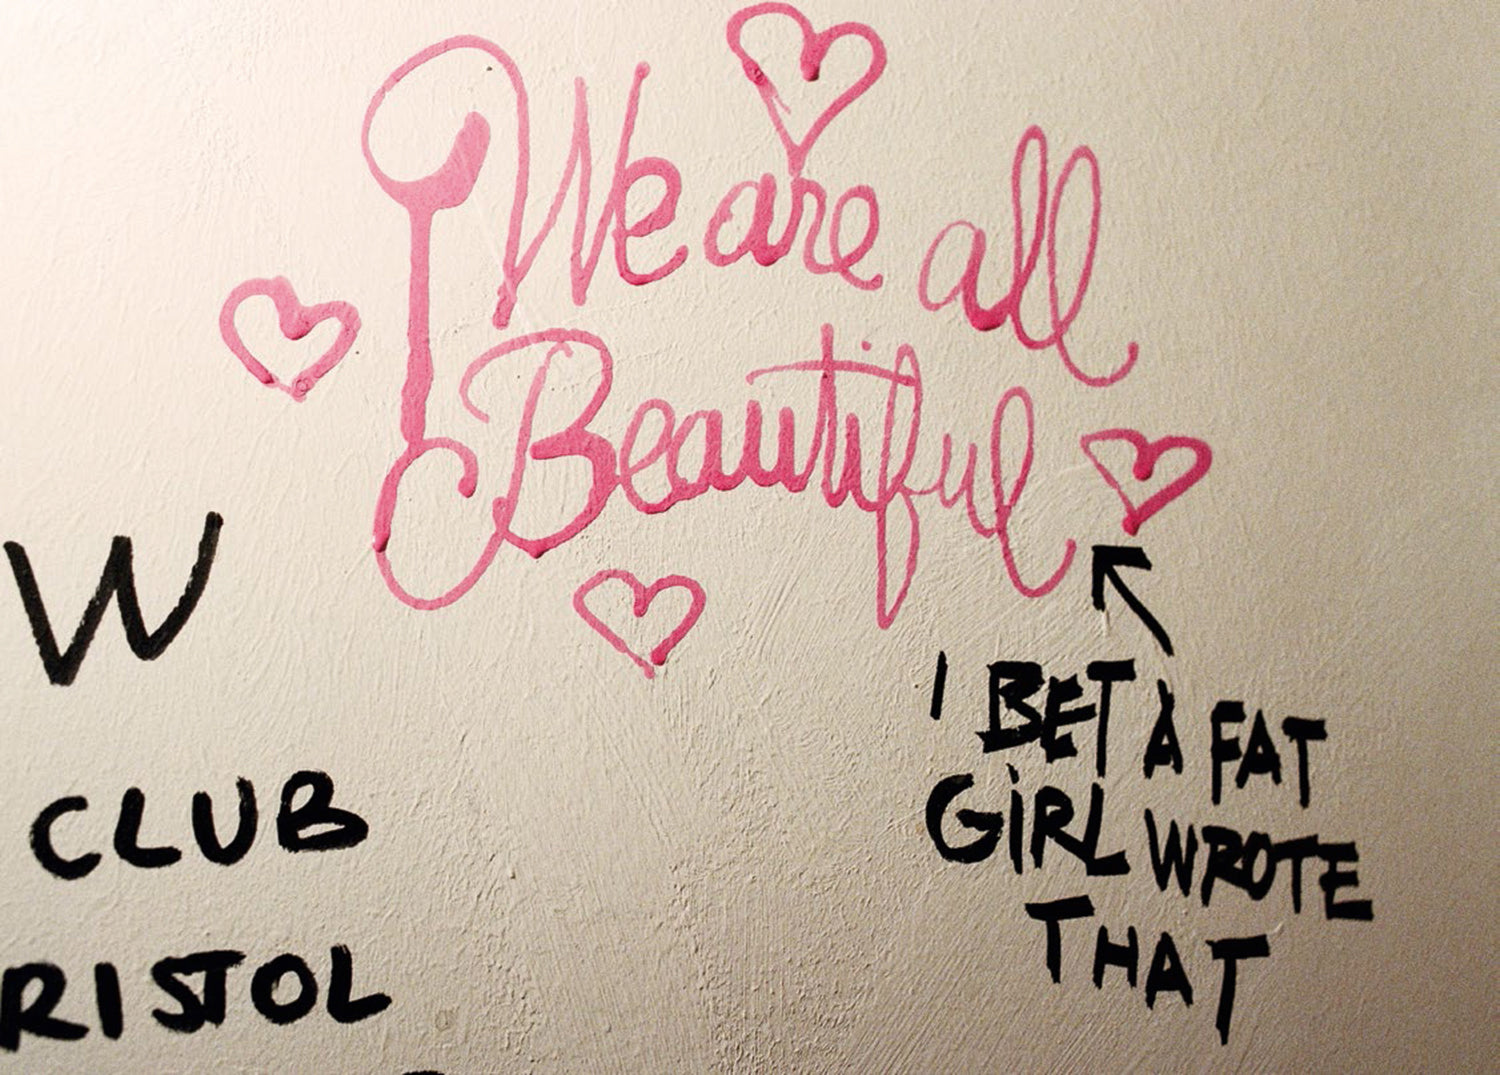 We are all
Beautiful
I BET A FAT
GIRL WROTE
THAT
W
CLUB
RISTOL